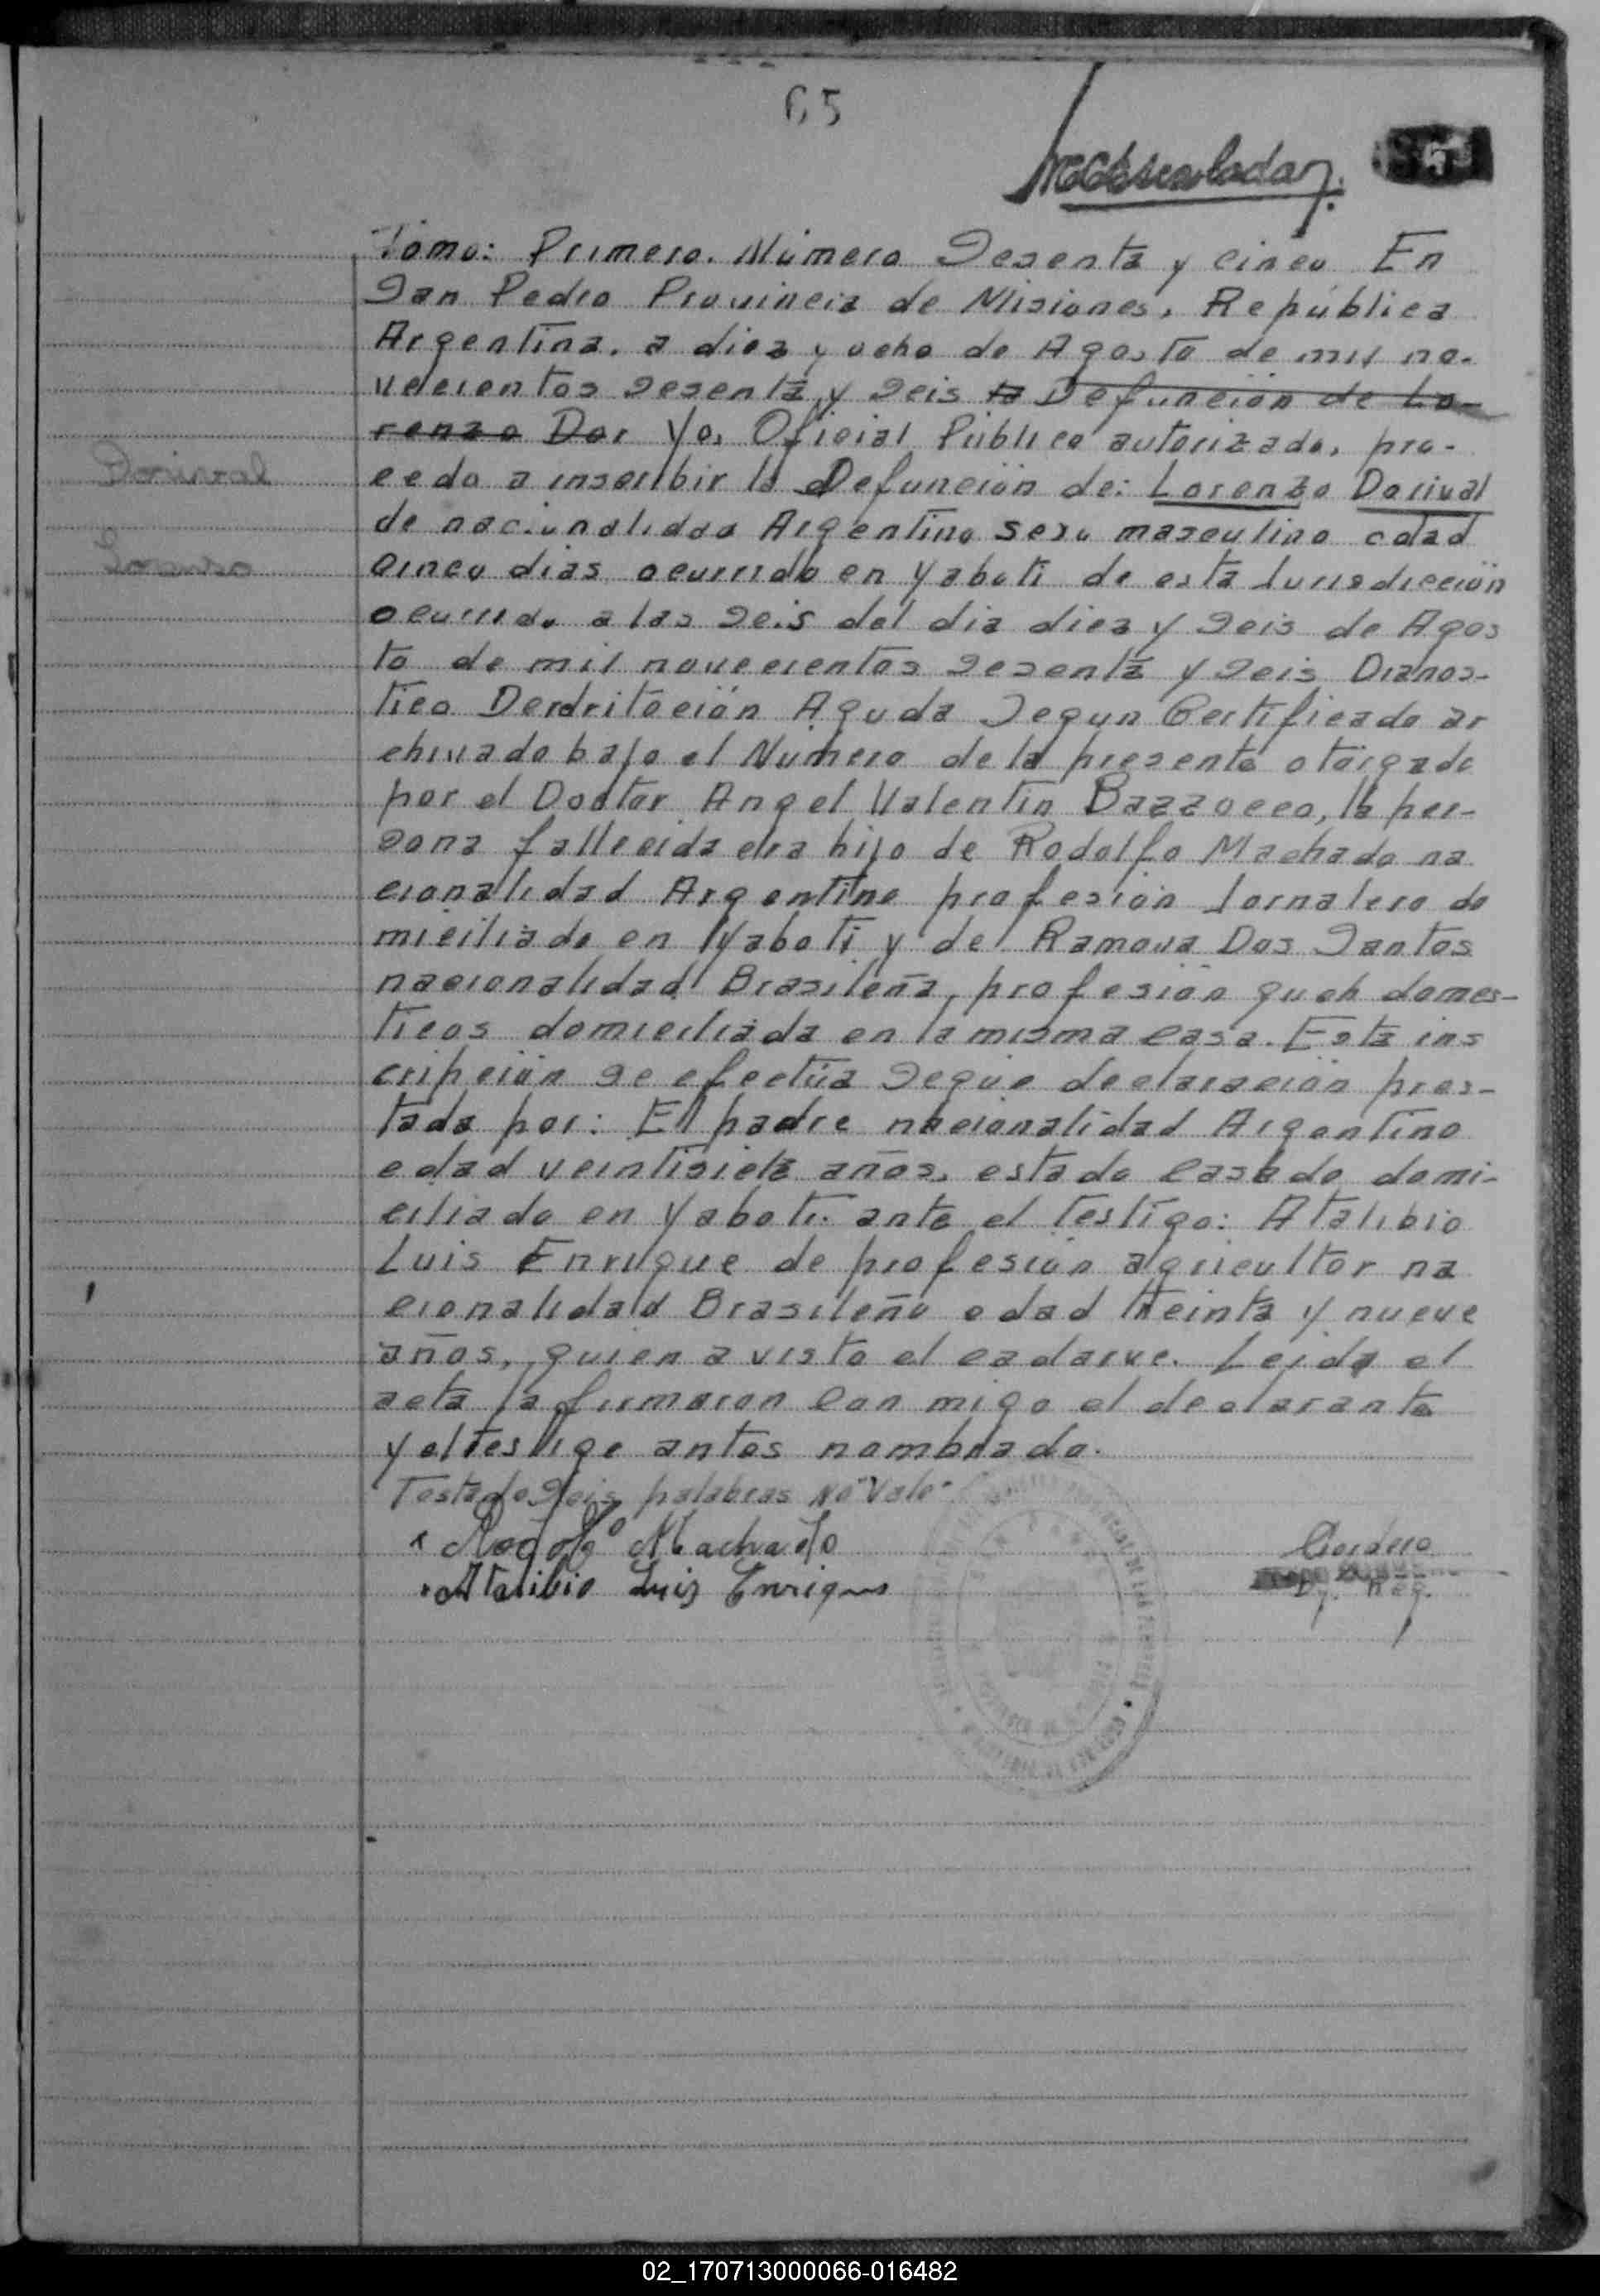 65
Tomo: Primero. Número Sesenta y cinco En
San Pedro Provincia de Misiones, República
Argentina. a diez y ocho de Agosto de mil no-
vecientos sesenta y seis la Defunción de Lo-
renzo Dor Yo, Oficial Público autorizado, pro-
Dorival
cedo a inscribir la Defunción de: Lorenzo Dorival
de nacionalidad Argentino sexo masculino edad
Lorenzo
cinco dias ocurrido en Yaboti de esta Jurisdicción
ocurrido a las seis del dia diez y seis de Agos
to de mil novecientos sesenta y seis Dianos-
tico Derdritación Aguda Segun Certificado ar
chivado bajo el Número de la presente otorgado
por el Doctor Angel Valentin Bazzocco, la per-
sona fallecida era hijo de Rodolfo Machado na
cionalidad Argentino profesión Jornalero do
miciliado en Yaboti y de Ramona Dos Santos
nacionalidad Brasileña, profesión queh domes-
ticos domiciliada en la misma casa. Esta ins
cripción se efectúa Segun declaración pres-
tada por: El padre nacionalidad Argentino
edad veintisiete años, estado casado domi-
ciliado en Yaboti. ante el testigo: Atalibio
Luis Enrique de profesión agricultor na
cionalidad Brasileño edad treinta y nueve
años, quien a visto el cadarve. Leida el
acta la firmaron con migo el declarante
y el testige antes nombrado.
Testado Seis palabras No "Vale"
Rodolfo Machado
Atalibio Luis Enrique
02_170713000066-016482